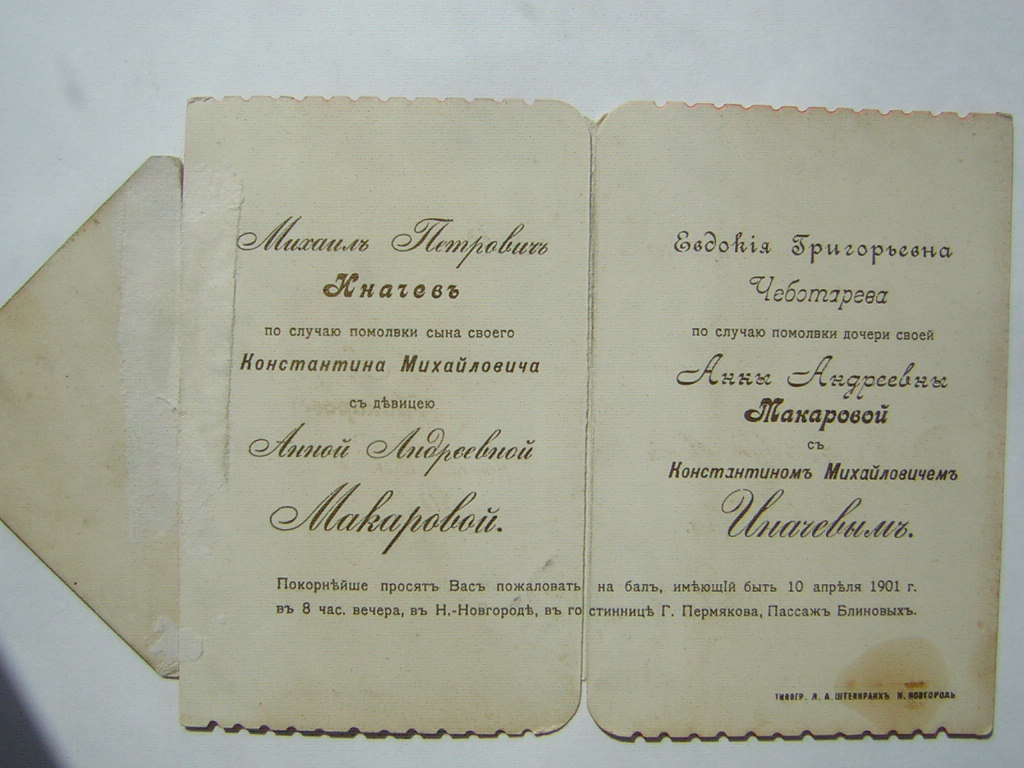 Михаилъ Петровичъ
Иначевъ
по случаю помолвки сына своего
Константина Михайловича
съ дѣвицею
Анной Андреевной
Макаровой.
Евдокія Григорьевна
Чеботарева
по случаю помолвки дочери своей
Анны Андреевны
Макаровой
съ
Константиномъ Михайловичемъ
Иначевымъ.
Покорнѣйше просятъ Васъ пожаловать на балъ, имѣющій быть 10 апрѣля 1901 г.
въ 8 час. вечера, въ Н.-Новгородѣ, въ гостинницѣ Г. Пермякова, Пассажъ Блиновыхъ.
ТИПОГР. Л. А. Н. НОВГОРОДЪ